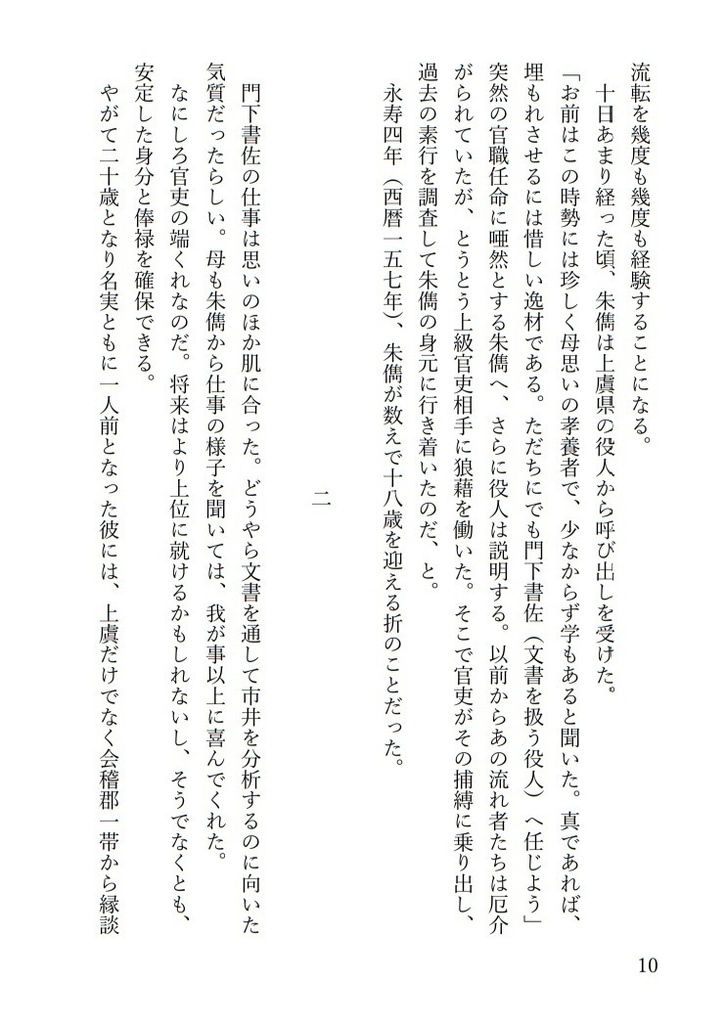 流転を幾度も幾度も経験することになる。
十日あまり経った頃、朱儁は上虞県の役人から呼び出しを受けた。
「お前はこの時勢には珍しく母思いの孝養者で、少なからず学もあると聞いた。真であれば、
埋もれさせるには惜しい逸材である。ただちにでも門下書佐（文書を扱う役人）へ任じよう」
突然の官職任命に唖然とする朱儁へ、さらに役人は説明する。以前からあの流れ者たちは厄介
がられていたが、とうとう上級官吏相手に狼藉を働いた。そこで官吏がその捕縛に乗り出し、
過去の素行を調査して朱儁の身元に行き着いたのだ、と。
永寿四年（西暦一五七年）、朱儁が数えで十八歳を迎える折のことだった。
二
門下書佐の仕事は思いのほか肌に合った。どうやら文書を通して市井を分析するのに向いた
気質だったらしい。母も朱儁から仕事の様子を聞いては、我が事以上に喜んでくれた。
なにしろ官吏の端くれなのだ。将来はより上位に就けるかもしれないし、そうでなくとも、
安定した身分と俸禄を確保できる。
やがて二十歳となり名実ともに一人前となった彼には、上虞だけでなく会稽郡一帯から縁談
10